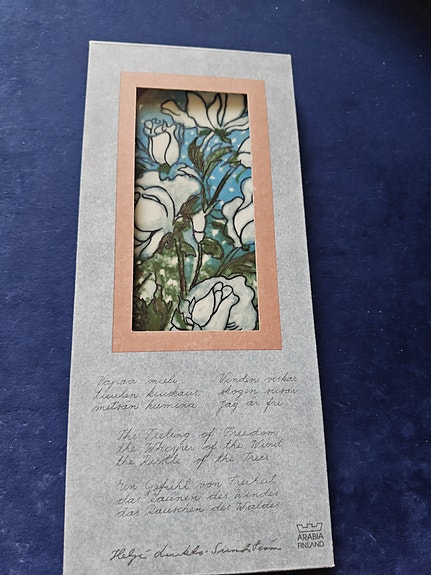 Vapaa mieli
tuulen kuiskaus
metsän humina
Vinden viskar
skogen susar
Jag är fri
The Feeling of Freedom
the Whisper of the Wind
the Rustle of the Trees
Ein Gefühl von Freiheit
das Raunen des Windes
das Rauschen des Waldes
Heljä Liukko-Sundström
ARABIA
FINLAND